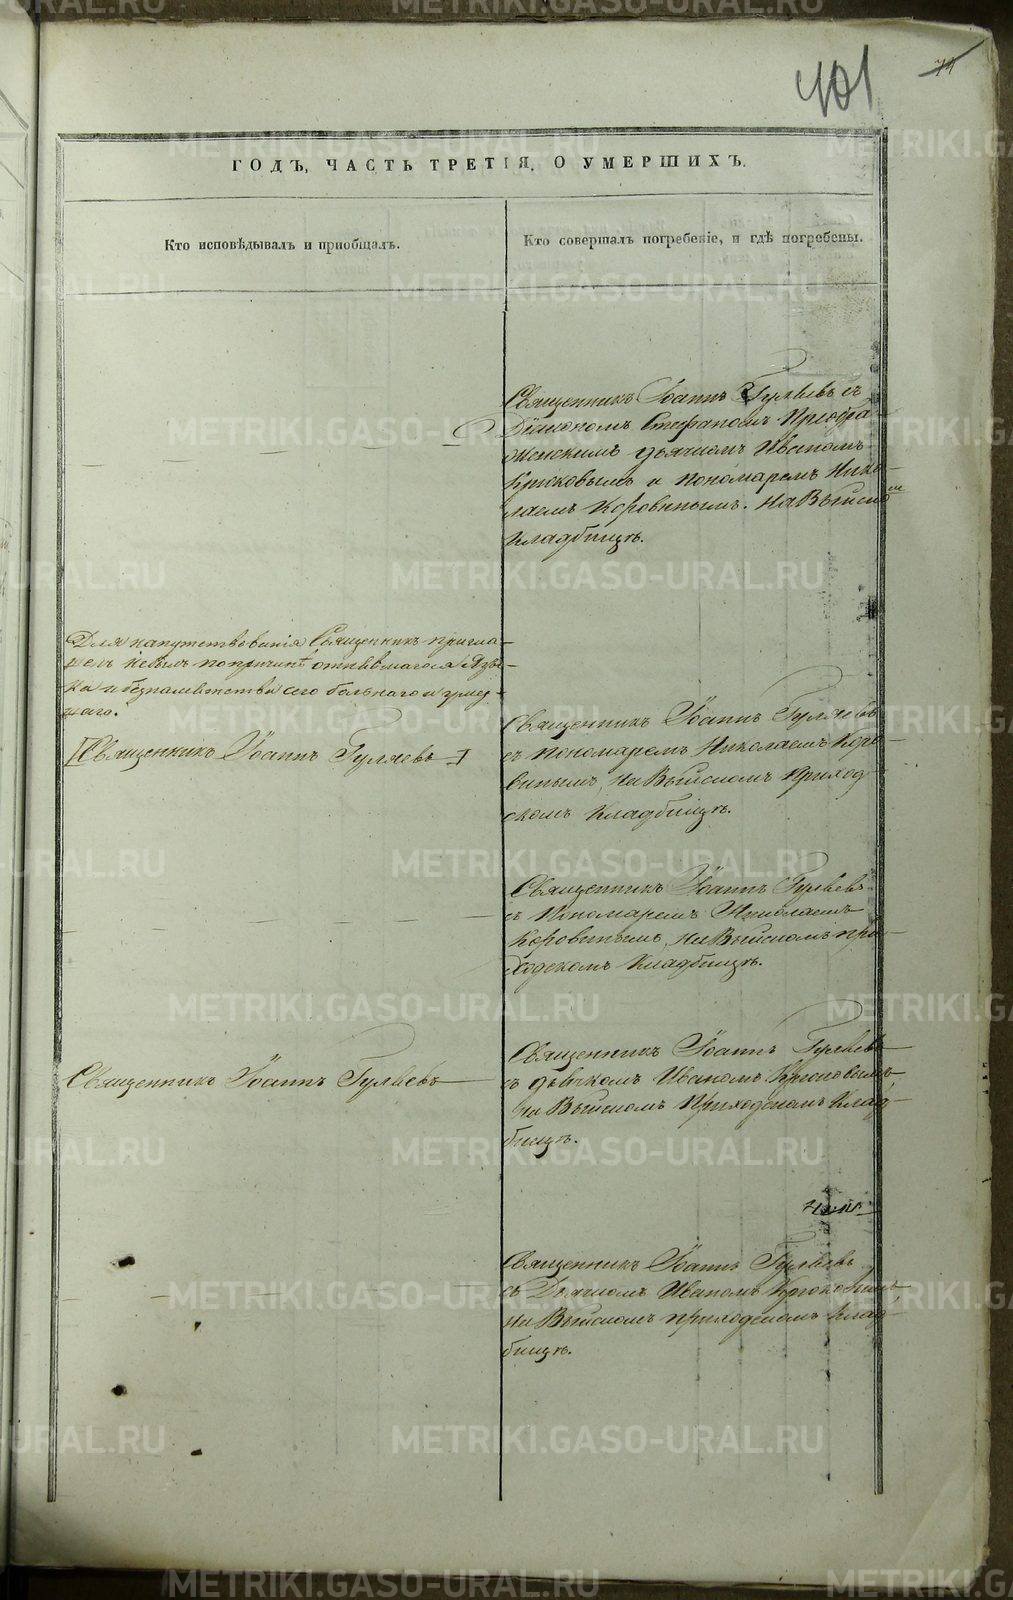 401
74
ГОДЪ, ЧАСТЬ ТРЕТІЯ, О УМЕРШИХЪ.
Кто исповѣдывалъ и пріобщалъ.
Кто совершалъ погребеніе, и гдѣ погребены.
Священникъ Іоаннъ Гуляевъ съ
Діакономъ Стефаномъ Преобра-
женскимъ дьячкомъ Иваномъ
Крюковымъ и пономаремъ Нико-
лаемъ Коровинымъ. На Выйско
Кладбищѣ.
Для напутствованія Священникъ пригла-
шенъ небылъ по причинѣ отнявшагося Язы-
ка и безпамятства сего больнаго и умер-
шаго.
Священникъ Іоаннъ Гуляевъ
Священникъ Іоаннъ Гуляевъ
съ пономаремъ Николаемъ Коро-
винымъ, на Выйскомъ приход
скомъ Кладбищѣ.
Священникъ Іоаннъ Гуляевъ
съ Пономаремъ Николаемъ
Коровинымъ, на Выйскомъ при-
ходскомъ Кладбищѣ.
Священникъ Іоаннъ Гуляевъ
Священникъ Іоаннъ Гуляевъ
съ дьячкомъ Иваномъ Крюковымъ,
на Выйскомъ Приходскомъ Клад-
бищѣ.
Священникъ Іоаннъ Гуляевъ
съ Дьячкомъ Иваномъ Крюковымъ,
на Выйскомъ приходскомъ Клад-
бищѣ.
METRIKI.GASO-URAL.RU